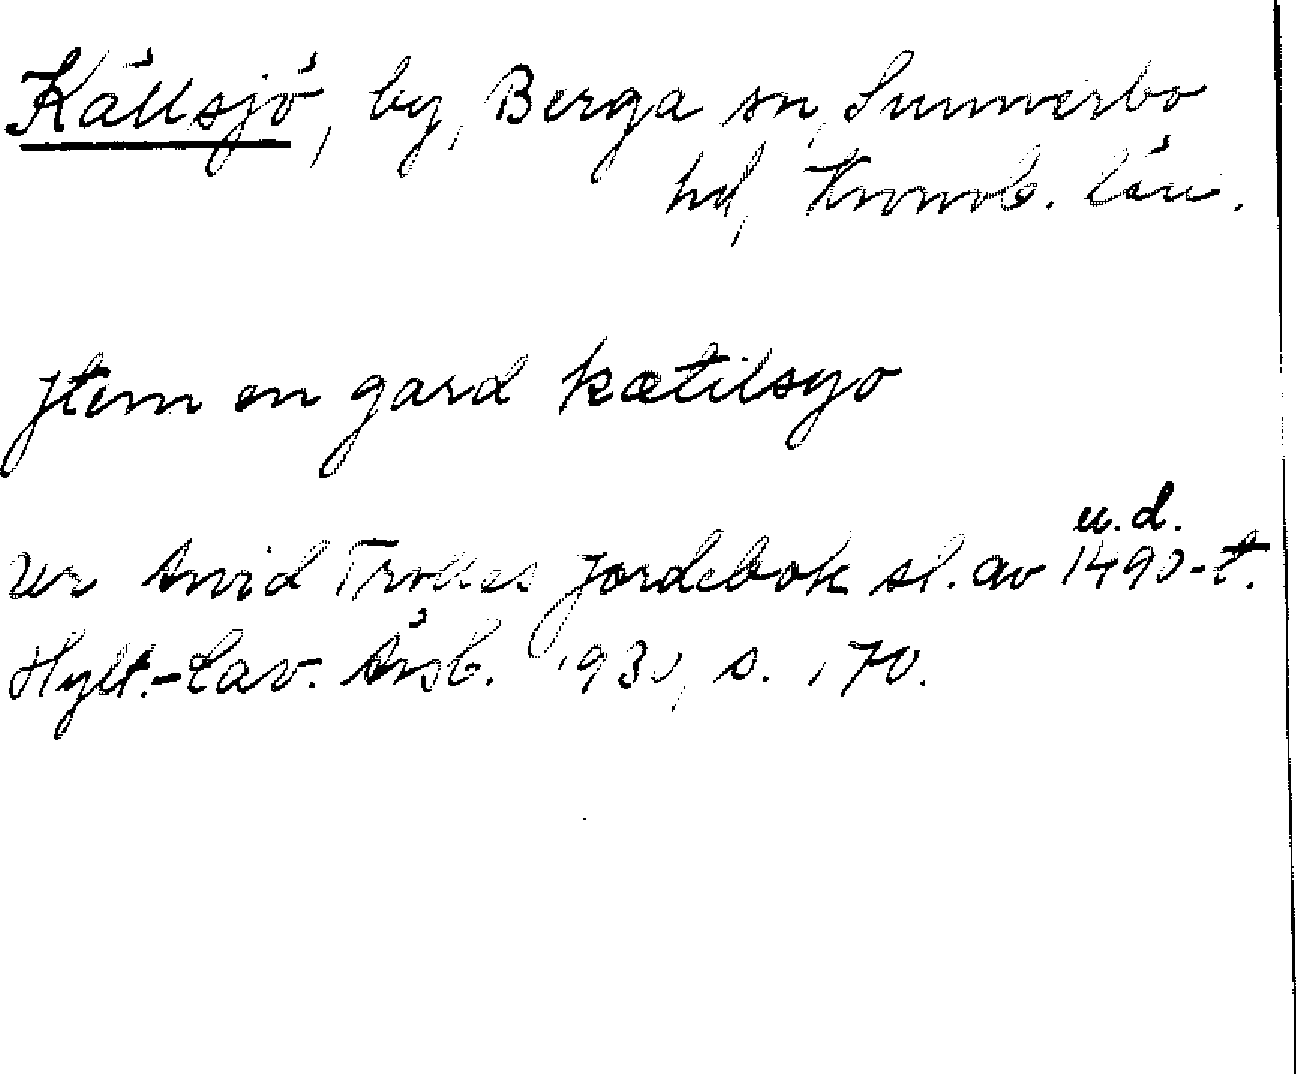 Källsjö, by, Berga sn, Sunnerbo
hd, Kronob. län.
Jtem en gard kætilsyo
u.d.
Ur Arvid Trolles jordebok sl. av 1490-t.
Hylt.-Cav. Årsb. 1930, s. 170.